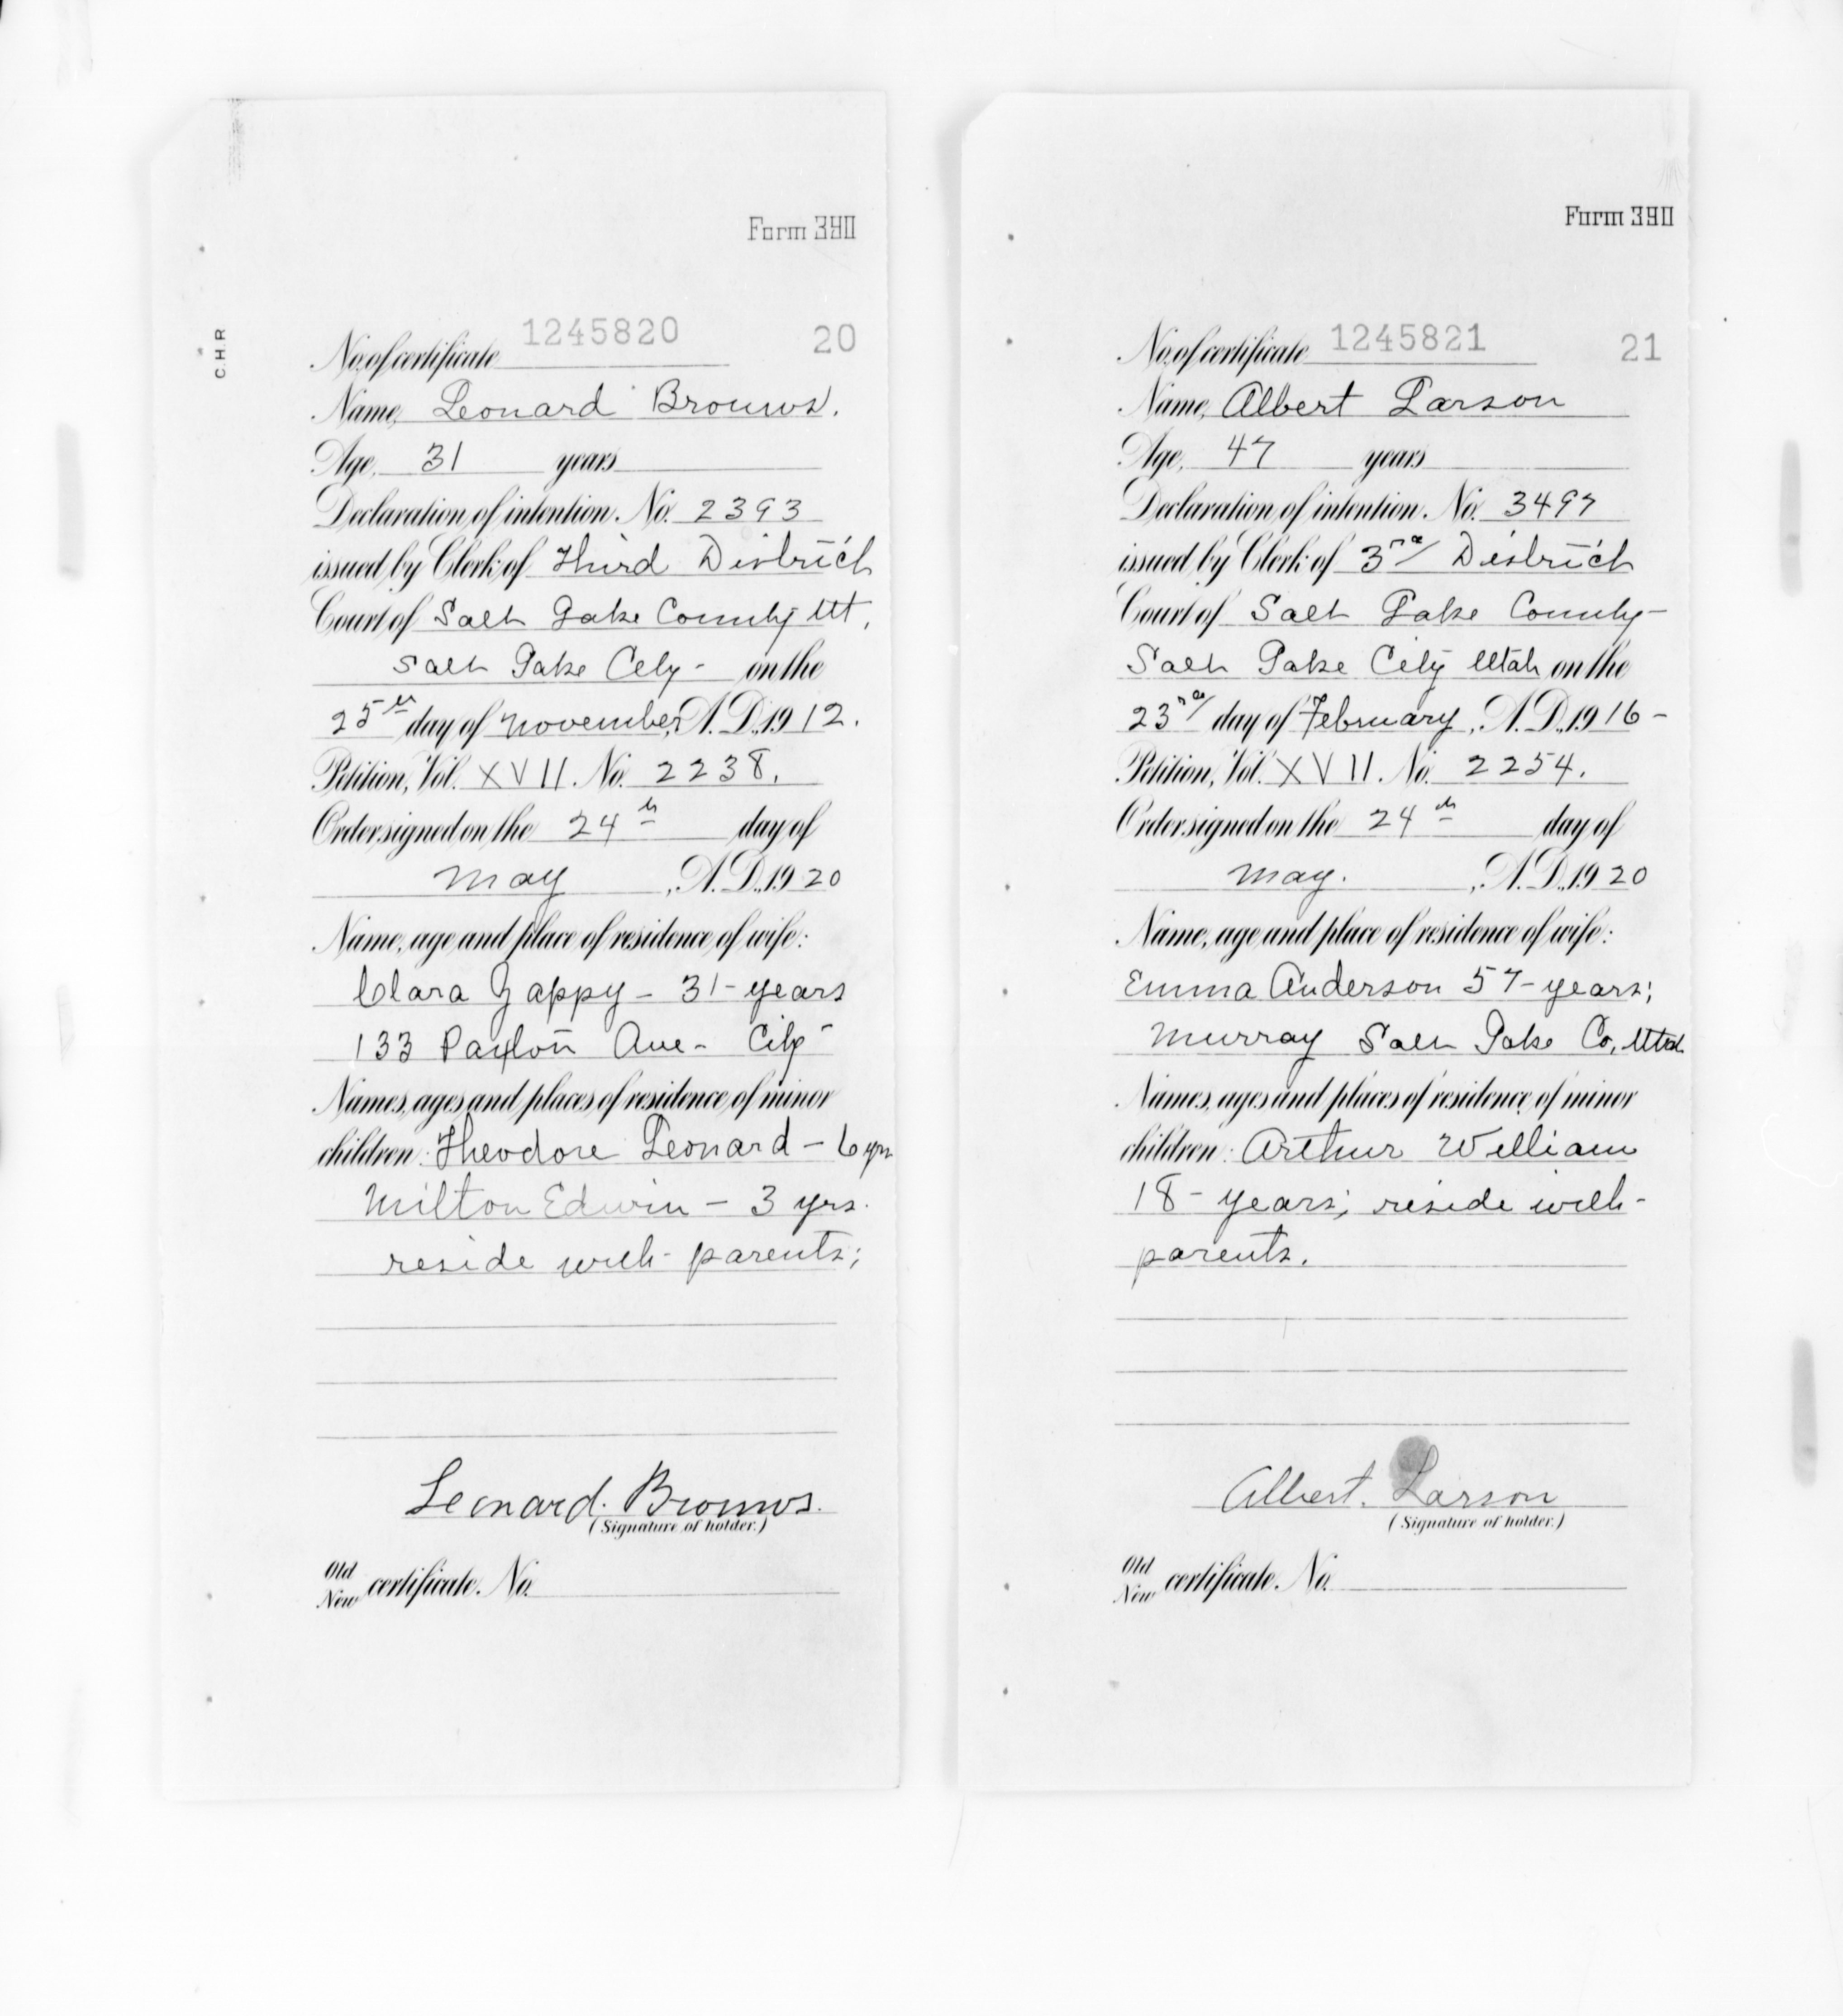 Form 390
C.H.R
No. of certificate 1245820 20
Name, Leonard Brouws.
Age, 31 years
Declaration of intention. No. 2393
issued by Clerk of Third District
Court of Salt Lake County Ut,
Salt Lake City - on the
25th day of November, A.D., 1912.
Petition, Vol. XVII. No. 2238.
Order signed on the 24th day of
May, A.D., 1920
Name, age and place of residence of wife:
Clara Gappy - 31- years
133 Paxton Ave - City -
Names, ages and places of residence of minor
children: Theodore Leonard - 6 yrs
Milton Edwin - 3 yrs.
reside with - parents;
Leonard. Brouws.
(Signature of holder.)
Old
New certificate. No.
Form 390
No. of certificate 1245821 21
Name, Albert Larson
Age, 47 years
Declaration of intention. No. 3497
issued by Clerk of 3rd District
Court of Salt Lake County -
Salt Lake City Utah on the
23rd day of February, A.D., 1916 -
Petition, Vol. XVII. No. 2254.
Order signed on the 24th day of
May., A.D., 1920
Name, age and place of residence of wife:
Emma Anderson 57- years;
Murray Salt Lake Co, Utah
Names, ages and places of residence of minor
children: Arthur William
18 - years; reside with -
parents.
Albert. Larson
(Signature of holder.)
Old
New certificate. No.